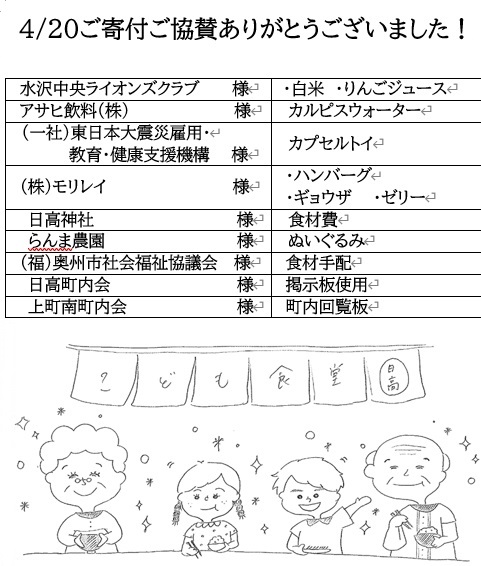 4/20ご寄付ご協賛ありがとうございました！
水沢中央ライオンズクラブ 様 ・白米 ・りんごジュース
アサヒ飲料(株) 様 カルピスウォーター
(一社)東日本大震災雇用・
教育・健康支援機構 様 カプセルトイ
(株)モリレイ 様 ・ハンバーグ
・ギョウザ ・ゼリー
日高神社 様 食材費
らんま農園 様 ぬいぐるみ
(福)奥州市社会福祉協議会 様 食材手配
日高町内会 様 掲示板使用
上町南町内会 様 町内回覧板
こども食堂 日高